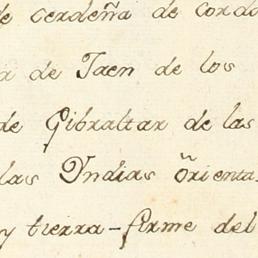 de cerdeña de cordo
a de Jaen de los
de Gibraltar de las
las Yndias Orienta
y tierra-firme del